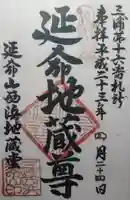 三浦第十六番札所
奉拝平成二十三年 四月二十四日
延命地蔵尊
延命山西浜地蔵堂